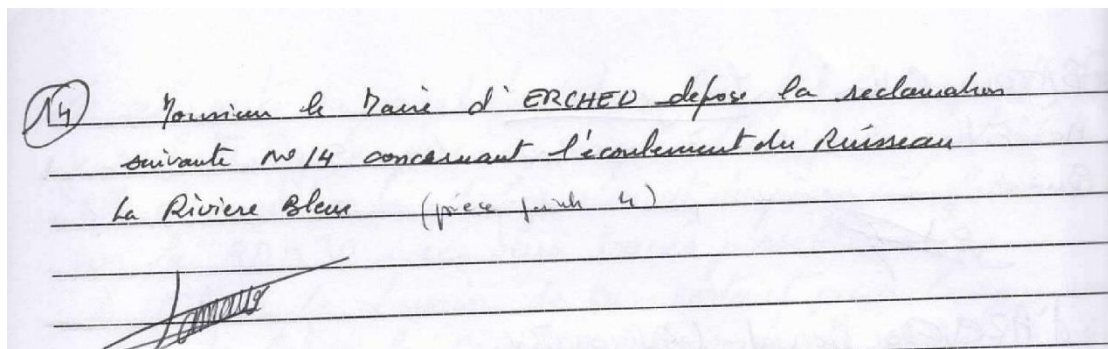 14 Monsieur le Maire d'ERCHEU depose la reclamation
suivante N° 14 concernant l'écoulement du Ruisseau
La Riviere Bleue (pièce jointe 4)